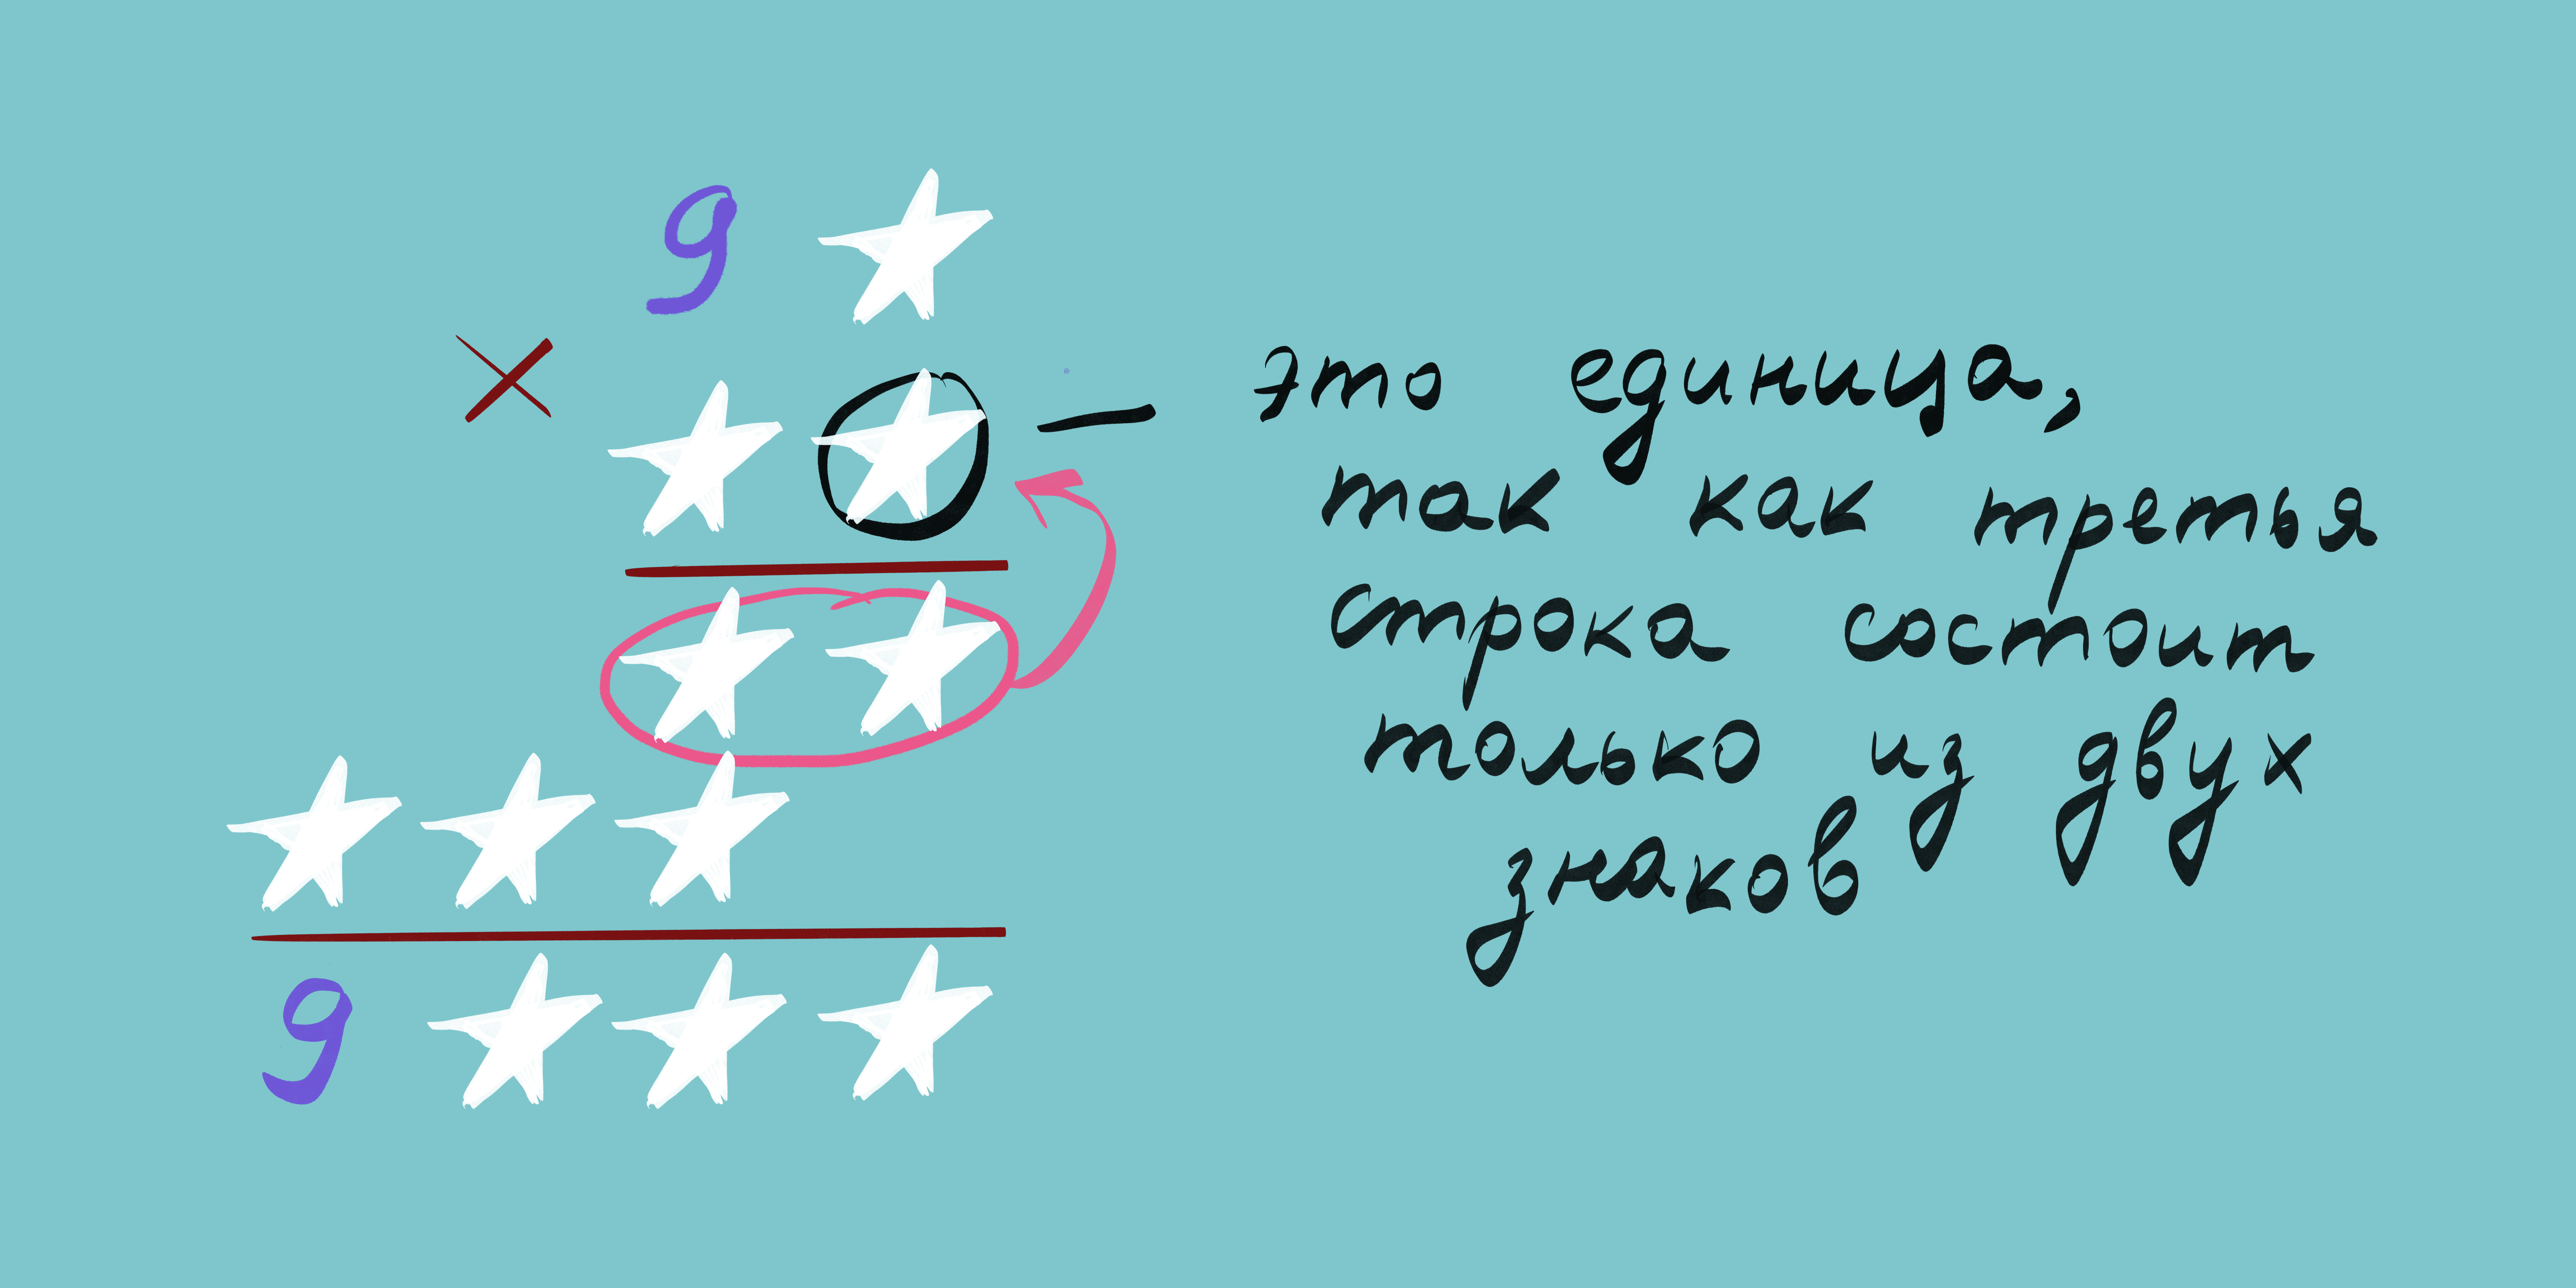 9 ★
× ★ ★ — это единица,
так как третья
★ ★ строка состоит
★ ★ ★ только из двух
знаков
9 ★ ★ ★